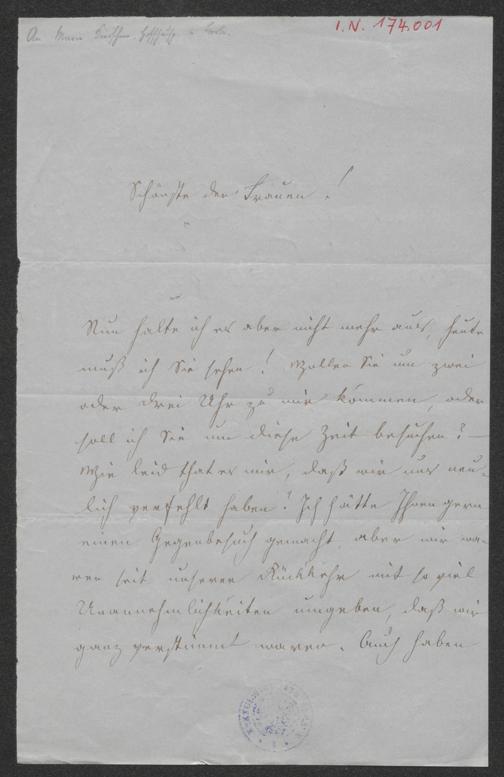 An Marie
I.N. 174.001
Schönste der Frauen!
Nun halte ich es aber nicht mehr aus, heute
muß ich Sie sehen! Wollen Sie um zwei
oder drei Uhr zu mir kommen, oder
soll ich Sie um diese Zeit besuchen? –
Wie leid that es mir, daß wir uns neu-
lich verfehlt haben! Ich hätte Ihnen gern
einen Gegenbesuch gemacht, aber wir wa-
ren seit unserer Rückkehr mit so viel
Unannehmlichkeiten umgeben, daß wir
ganz verstimmt waren. Auch haben